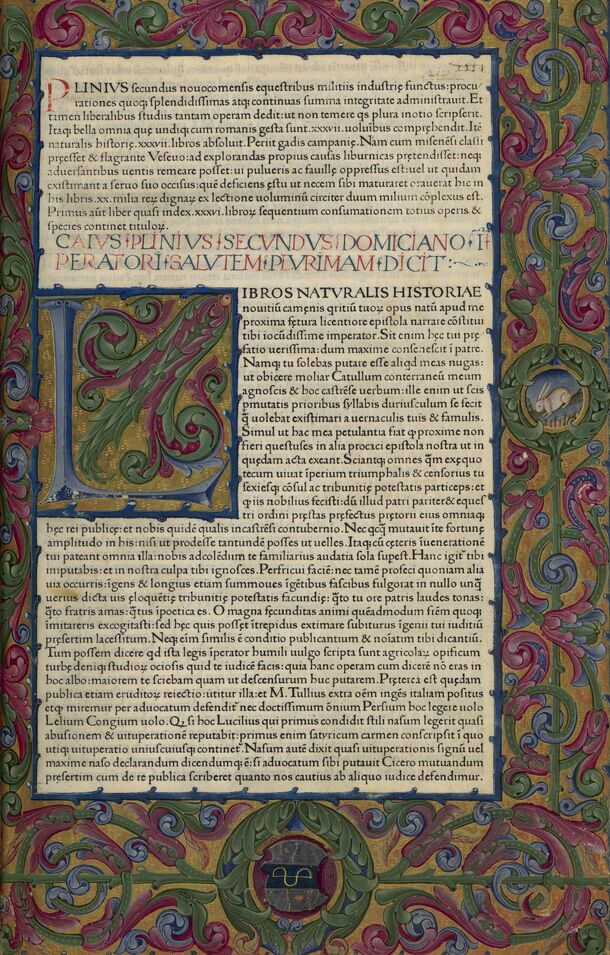 PLINIVS secundus nouocomensis equestribus militiis industrię functus: procu
rationes quoq; splendidissimas atq; continuas summa integritate administrauit. Et
tamen liberalibus studiis tantam operam dedit: ut non temere q̃s plura in otio scripserit.
Itaq; bella omnia quę undiq; cum romanis gesta sunt .xxxvii. uoluībus comprehendit. Itē
naturalis historię .xxxvii. libros absoluit. Periit gadis campanię. Nam cum misenēsi classi
pręesset & flagrante Vesęuo: ad explorandas propius causas liburnicas prętendisset: neq;
aduersantibus uentis remeare posset: ui pulueris ac fauillę oppressus est: uel ut quidam
existimant a seruo suo occisus: quē deficiens ęstu ut necem sibi maturaret orauerat hic in
his libris .xx. milia reꝝ dignaꝝ ex lectione uoluminū circiter duum milium cōplexus est.
Primus aūt liber quasi index .xxxvi. libroꝝ sequentium consumationem totius operis &
species continet tituloꝝ.
CAIVS PLINIVS SECVNDVS DOMICIANO IM
PERATORI SALVTEM PLVRIMAM DICIT:
LIBROS NATVRALIS HISTORIAE
nouitiū camęnis q̃ritiū tuoꝝ opus natū apud me
proxima fętura licentiore epistola narrare cōstitui
tibi iocūdissime imperator. Sit enim hęc tui prę
fatio uerissima: dum maxime consenescit ī patre.
Namq; tu solebas putare esse aliqd meas nugas:
ut obicere moliar Catullum conterraneū meum
agnoscis & hoc castrēse uerbum: ille enim ut scis
pmutatis prioribus syllabis duriusculum se fecit
q̃ uolebat existimari a uernaculis tuis & famulis.
Simul ut hac mea petulantia fiat qp proxime non
fieri questuses in alia procaci epistola nostra ut in
quędam acta exeant. Sciantq; omnes q̃m exęquo
tecum uiuat īperium triumphalis & censorius tu
sexiesq; cōsul ac tribunitię potestatis particeps: et
qp iis nobilius fecisti: dū illud patri pariter & eques
tri ordini pręstas pręfectus prętorii eius omniaq;
hęc rei publicę: et nobis quidē qualis incastrēsi contubernio. Nec qcq̃ mutauit īte fortunę
amplitudo in his: nisi ut prodesse tantundē posses ut uelles. Itaq; cū cęteris īuenerationē
tui pateant omnia illa: nobis adcolēdum te familiarius audatia sola supest. Hanc igit̄ tibi
imputabis: et in nostra culpa tibi ignosces. Perfricui faciē: nec tamē profeci quoniam alia
uia occurris: īgens & longius etiam summoues īgētibus fascibus fulgorat in nullo unq̃
uerius dicta uis eloquētię tribunitię potestatis facundię: q̃to tu ore patris laudes tonas:
q̃to fratris amas: q̃tus īpoetica es. O magna fęcunditas animi quēadmodum fr̄em quoq;
imitareris excogitasti: sed hęc quis posset ītrepidus extimare subiturus īgenii tui iuditiū
pręsertim lacessitum. Neq; eim similis ē conditio publicantium & noīatim tibi dicantiū.
Tum possem dicere qd ista legis īperator humili uulgo scripta sunt agricolaꝝ opificum
turbę deniq; studioꝝ ociosis quid te iudicē facis: quia hanc operam cum dicerē nō eras in
hoc albo: maiorem te sciebam quam ut descensurum huc putarem. Pręterea est quędam
publica etiam eruditoꝝ reiectio: utitur illa: et M. Tullius extra oēm ingēs italiam positus
etq miremur per aduocatum defendit̄ nec doctissimum ōnium Persium hoc legere uolo
Lelium Congium uolo. Qꝫ si hoc Lucilius qui primus condidit stili nasum legerit quasi
abusionem & uituperationē reputabit: primus enim satyricum carmen conscripsit ī quo
utiq; uituperatio uniuscuiusq; continet̄. Nasum autē dixit quasi uituperationis signū uel
maxime naso declarandum dicendumq; ē: si aduocatum sibi putauit Cicero mutuandum
pręsertim cum de re publica scriberet quanto nos cautius ab aliquo iudice defendimur.